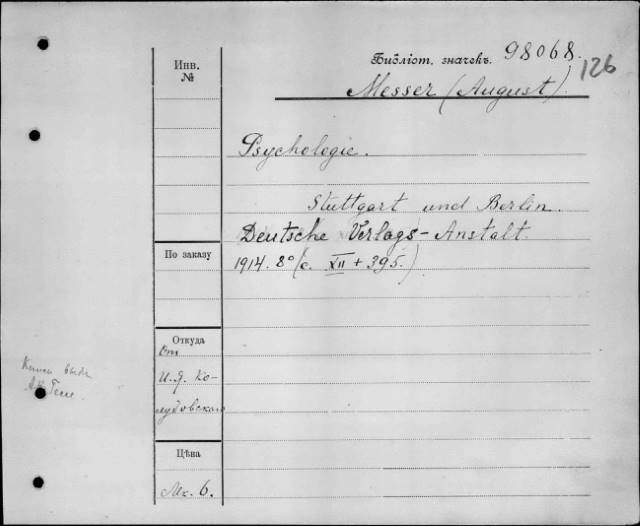 Инв.
№
Библіот. значекъ. 98068.
126
Messer (August).
Psychologie.
Stuttgart und Berlin.
Deutsche Verlags-Anstalt.
По заказу
1914. 8° (с. XII + 395.)
Откуда
От
И. Я. Ко-
лубовского
Цѣна
Мк. 6.